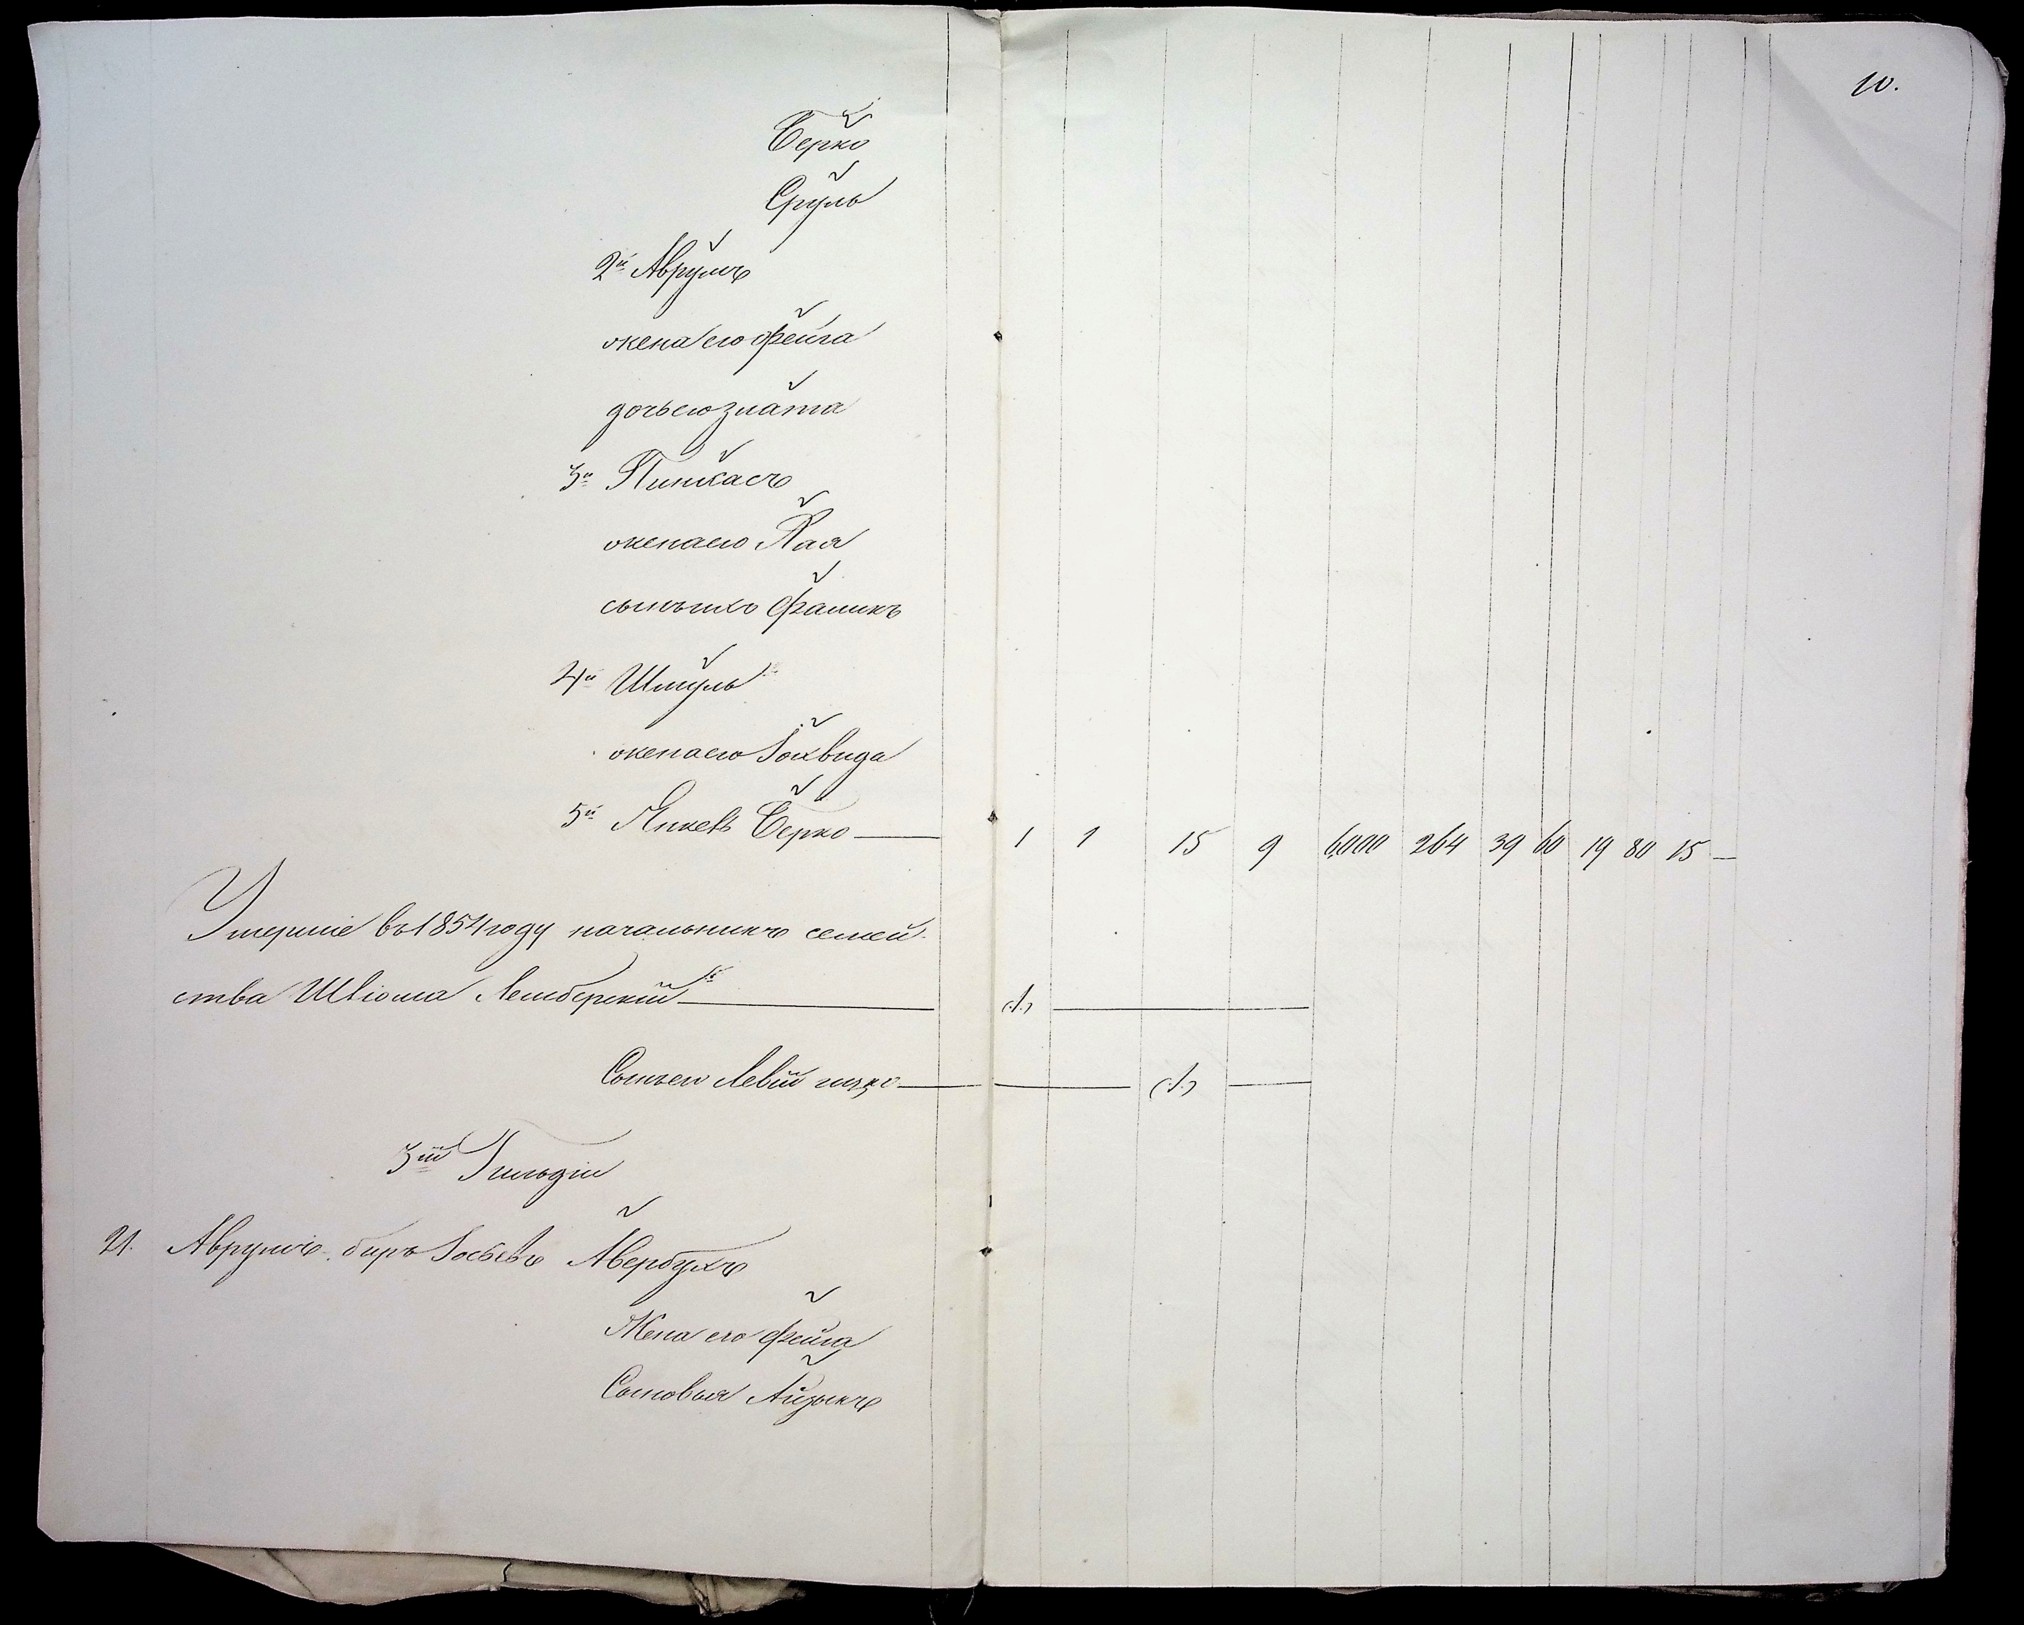 10.
Берко
Сруль
2й Аврумъ
жена его Фейга
дочь его Злата
3й Пинхасъ
жена его Хая
сынъ ихъ Фаликъ
4й Шмуль
жена его Гохвида
5й Янкевъ Берко — 1 1 15 9 6,000 264 39 60 19 80 15 —
Умершіе въ 1854 году начальникъ семей-
ства Шліома Лемберскій — (1.) —
Сынъ его Левій — (1.) —
3ій Гильдіи
21. Аврумъ беръ Іосевъ Авербухъ
Жена его Фейга
Сыновья Айзыкъ